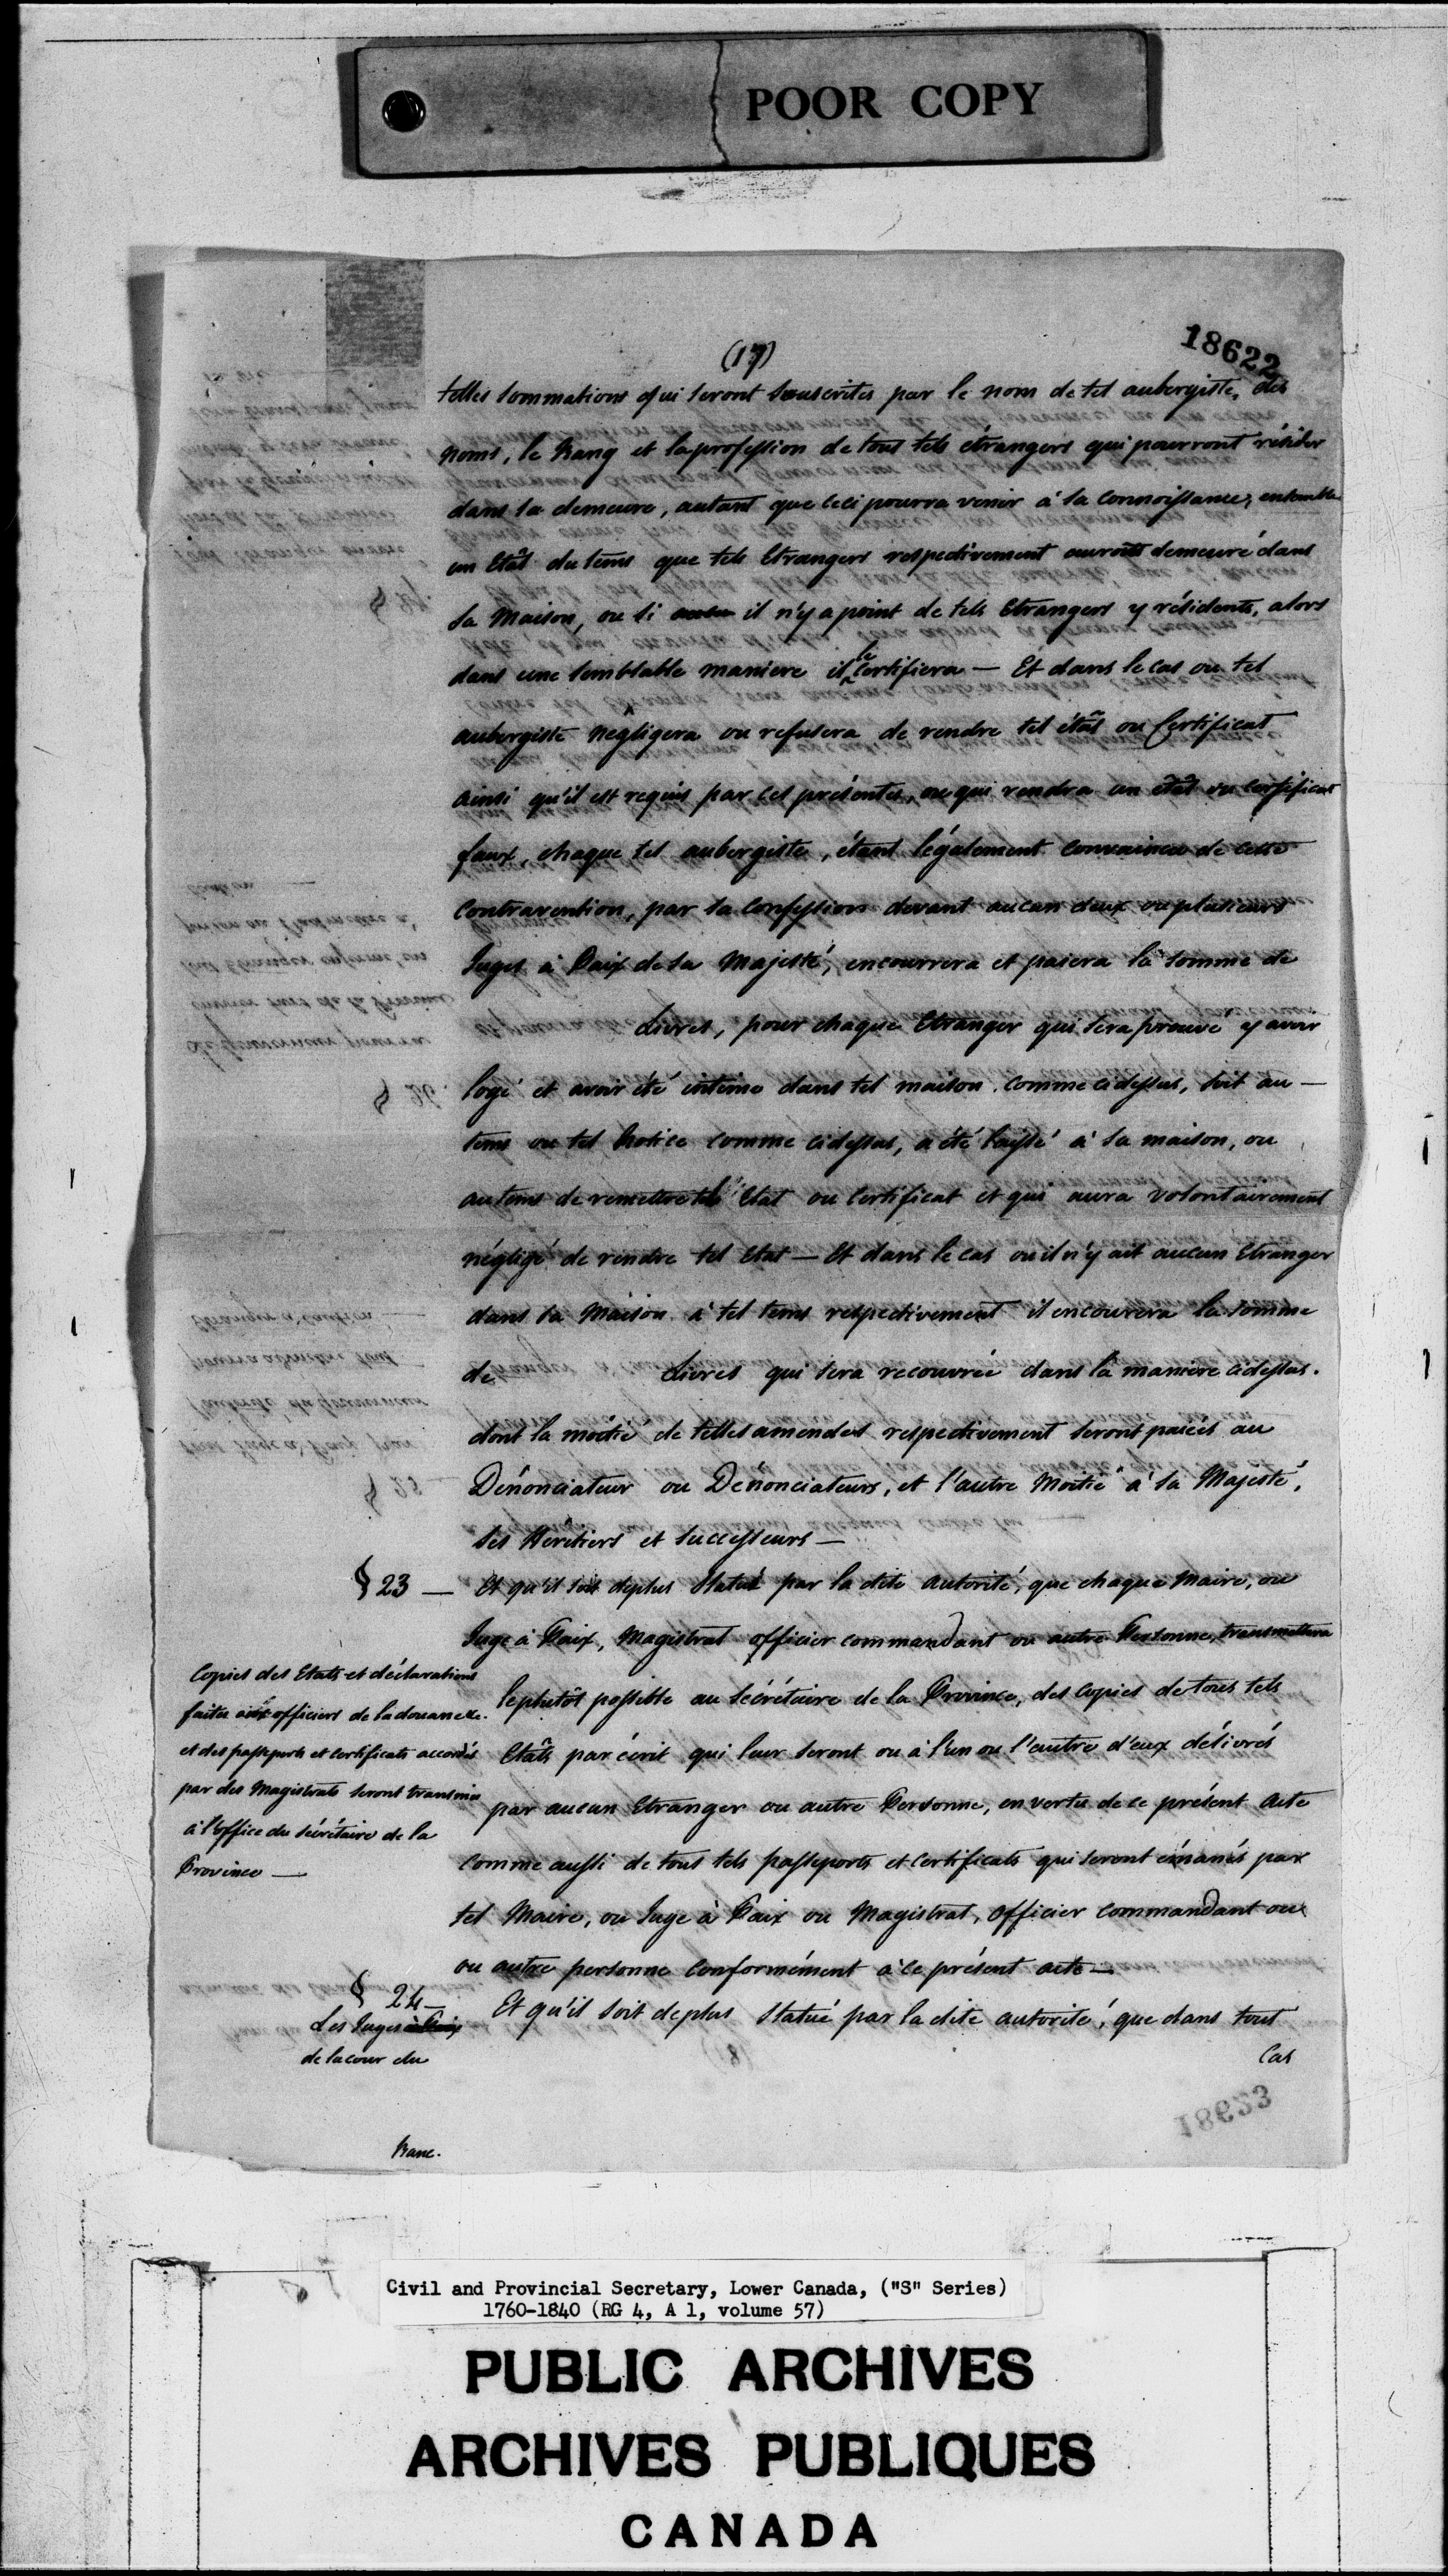 POOR COPY
18622
(17)
telles sommations qui seront souscrites par le nom de tel aubergiste, des
noms, le Rang et la profession de tous tels étrangers qui pourront résider
dans sa demeure, autant que ceci pourra venir à sa connoissance, ensemble
un Etât du tems que tels Etrangers respectivement auront demeuré dans
sa Maison, ou si aucun il n'y a point de tels Etrangers y résidents, alors
dans une semblable maniere il le Certifiera — Et dans le cas ou tel
aubergiste négligera ou refusera de rendre tel étât ou Certificat
ainsi qu'il est requis par ces présentes, ou qui rendra un etât ou certificat
faux, chaque tel aubergiste, étant légalement convaincu de cette
contravention, par sa confession devant aucun deux ou plusieurs
Juges à Paix de sa Majesté, encourrera et paiera la somme de
Livres, pour chaque Etranger qui sera prouvé y avoir
logé et avoir été intime dans tel maison comme cidessus, soit au —
tems ou tel Notice comme cidessus, a été laissé à sa maison, ou
au tems de remettre tel Etat ou Certificat et qui aura volontairement
négligé de rendre tel Etat — Et dans le cas ou il n'y ait aucun Etranger
dans sa Maison à tel tems respectivement il encourera la somme
de Livres qui sera recouvrée dans la manière cidessus.
dont la moitié de telles amendes respectivement seront paiées au
Dénonciateur ou Dénonciateurs, et l'autre Moitié à sa Majesté,
ses Héritiers et successeurs —
§ 23 — Et qu'il soit deplus Statué par la dite autorité, que chaque Maire, ou
Juge à Paix, Magistrat officier commandant ou autre Personne, transmettera
leplutôt possible au Sécrétaire de la Province, des copies de tous tels
Etâts par écrit qui leur seront ou à l'un ou l'autre d'eux délivrés
par aucun Etranger ou autre Personne, en vertu de ce présent Acte
comme aussi de tous tels passeports et certificats qui seront émanés par
tel Maire, ou Juge à Paix ou Magistrat, officier commandant ou
ou autre personne conformément à ce présent acte —
Copies des Etats et déclarations
faites aux officiers de la douane &c.
et des passeports et certificats accordés
par des Magistrats seront transmis
à l'office du Sécrétaire de la
Province —
§ 24 —
Les Juges à Paix
de la cour du
Banc.
Et qu'il soit deplus Statué par la dite autorité, que dans tout
Cas
18623
Civil and Provincial Secretary, Lower Canada, ("S" Series)
1760-1840 (RG 4, A 1, volume 57)
PUBLIC ARCHIVES
ARCHIVES PUBLIQUES
CANADA